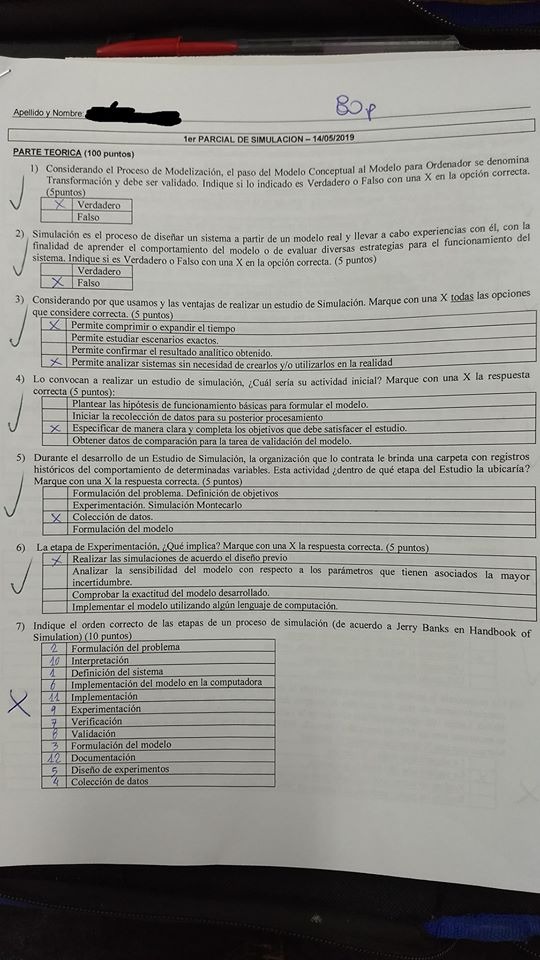 Apellido y Nombre:
80p
1er PARCIAL DE SIMULACION – 14/05/2019
PARTE TEORICA (100 puntos)
1) Considerando el Proceso de Modelización, el paso del Modelo Conceptual al Modelo para Ordenador se denomina
Transformación y debe ser validado. Indique si lo indicado es Verdadero o Falso con una X en la opción correcta.
(5puntos)
X Verdadero
Falso
2) Simulación es el proceso de diseñar un sistema a partir de un modelo real y llevar a cabo experiencias con él, con la
finalidad de aprender el comportamiento del modelo o de evaluar diversas estrategias para el funcionamiento del
sistema. Indique si es Verdadero o Falso con una X en la opción correcta. (5 puntos)
Verdadero
X Falso
3) Considerando por que usamos y las ventajas de realizar un estudio de Simulación. Marque con una X todas las opciones
que considere correcta. (5 puntos)
X Permite comprimir o expandir el tiempo
Permite estudiar escenarios exactos.
Permite confirmar el resultado analítico obtenido.
X Permite analizar sistemas sin necesidad de crearlos y/o utilizarlos en la realidad
4) Lo convocan a realizar un estudio de simulación, ¿Cuál sería su actividad inicial? Marque con una X la respuesta
correcta (5 puntos):
Plantear las hipótesis de funcionamiento básicas para formular el modelo.
Iniciar la recolección de datos para su posterior procesamiento
X Especificar de manera clara y completa los objetivos que debe satisfacer el estudio.
Obtener datos de comparación para la tarea de validación del modelo.
5) Durante el desarrollo de un Estudio de Simulación, la organización que lo contrata le brinda una carpeta con registros
históricos del comportamiento de determinadas variables. Esta actividad ¿dentro de qué etapa del Estudio la ubicaría?
Marque con una X la respuesta correcta. (5 puntos)
Formulación del problema. Definición de objetivos
Experimentación. Simulación Montecarlo
X Colección de datos.
Formulación del modelo
6) La etapa de Experimentación, ¿Qué implica? Marque con una X la respuesta correcta. (5 puntos)
X Realizar las simulaciones de acuerdo el diseño previo
Analizar la sensibilidad del modelo con respecto a los parámetros que tienen asociados la mayor
incertidumbre.
Comprobar la exactitud del modelo desarrollado.
Implementar el modelo utilizando algún lenguaje de computación.
7) Indique el orden correcto de las etapas de un proceso de simulación (de acuerdo a Jerry Banks en Handbook of
Simulation) (10 puntos)
2 Formulación del problema
10 Interpretación
1 Definición del sistema
6 Implementación del modelo en la computadora
11 Implementación
9 Experimentación
7 Verificación
8 Validación
3 Formulación del modelo
12 Documentación
5 Diseño de experimentos
4 Colección de datos